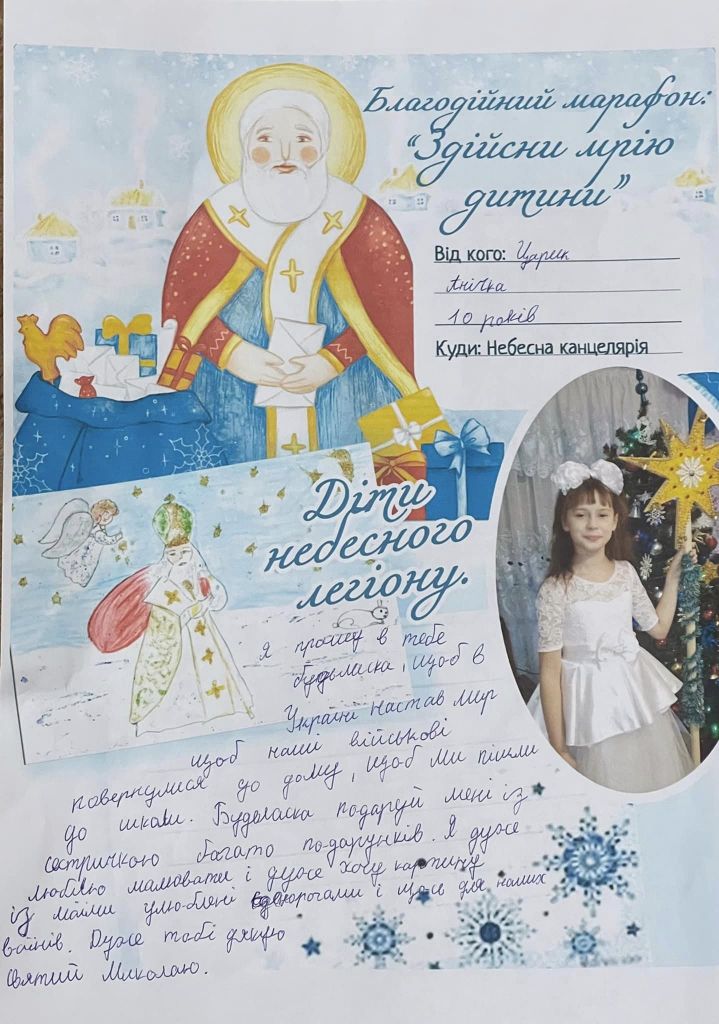 Благодійний марафон:
“Здійсни мрію
дитини”
Від кого: Царик
Анічка
10 років
Куди: Небесна канцелярія
Діти
небесного
легіону.
Я прошу в тебе
будьласка, щоб в
Україні настав мир
щоб наші військові
повернулися до дому, щоб ми пішли
до школи. Будьласка подаруй мені із
сестричкою багато подарунків. Я дуже
люблю малювати і дуже хочу картину
із моїми улюблені єдинорогами і щось для наших
воїнів. Дуже тобі дякую
Святий Миколаю.